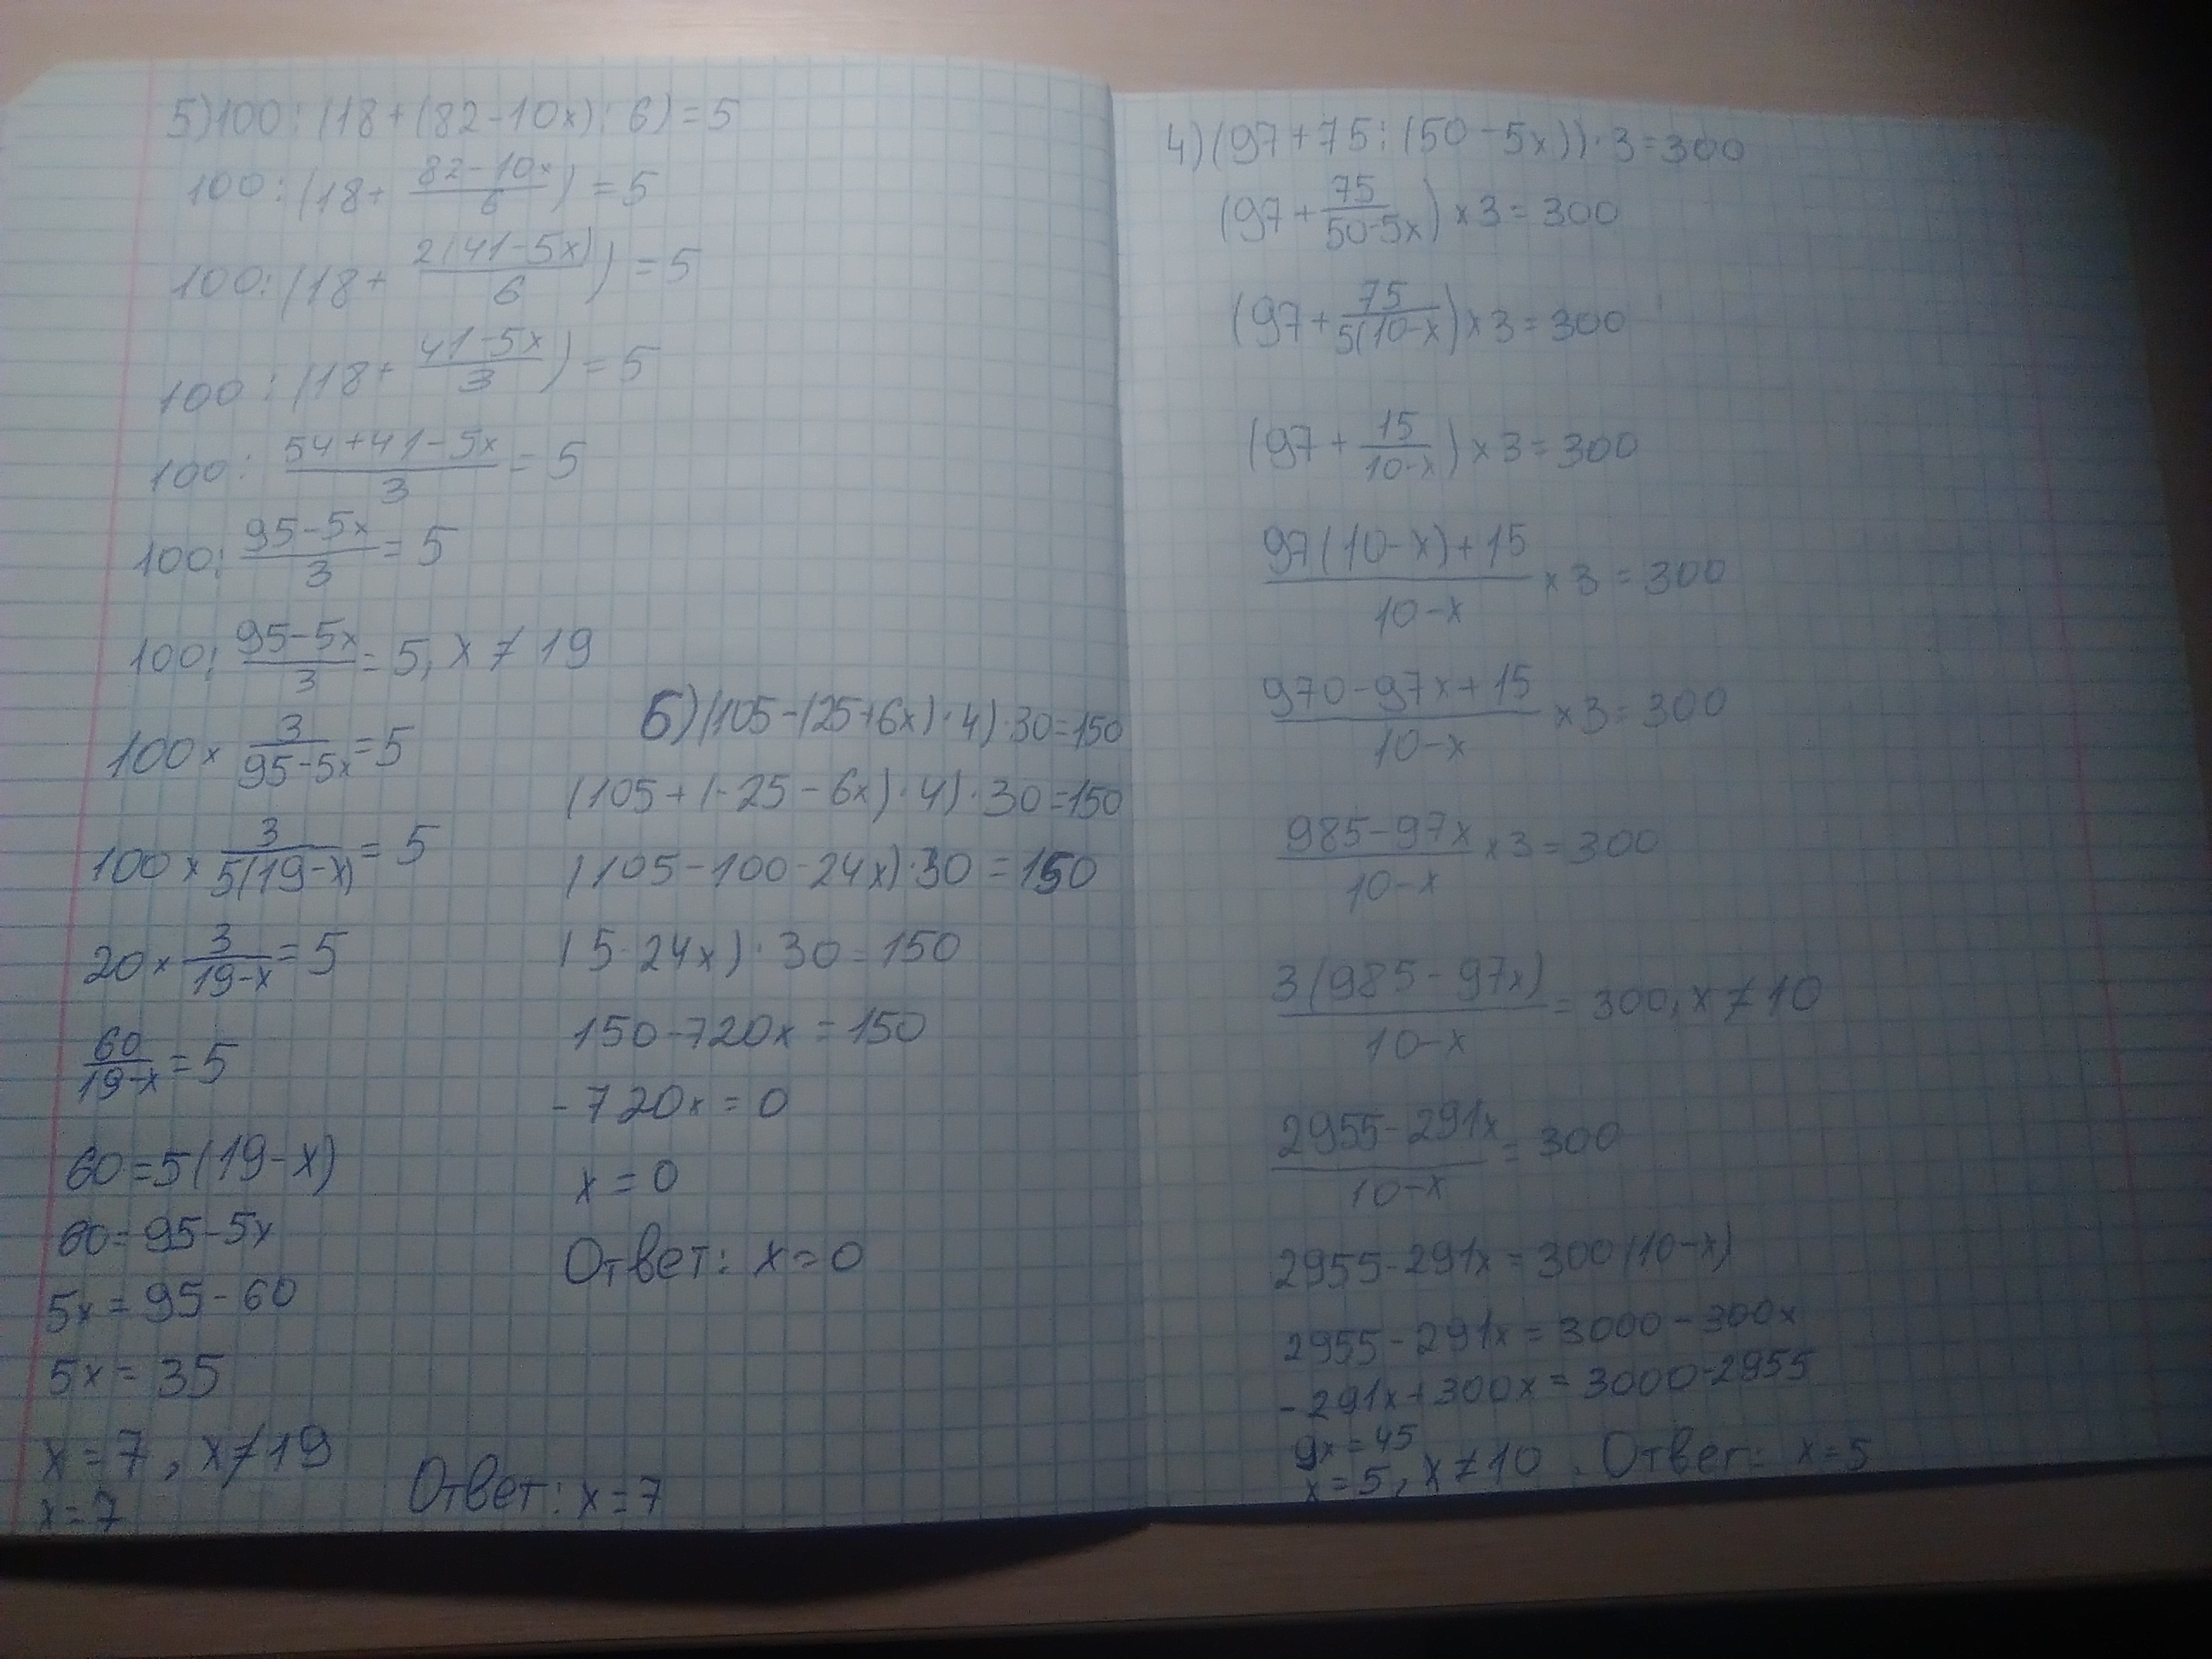 5) 100 : (18 + (82 - 10x) : 6) = 5
100 : (18 + \frac{82 - 10x}{6}) = 5
100 : (18 + \frac{2(41 - 5x)}{6}) = 5
100 : (18 + \frac{41 - 5x}{3}) = 5
100 : \frac{54 + 41 - 5x}{3} = 5
100 : \frac{95 - 5x}{3} = 5
100 : \frac{95 - 5x}{3} = 5, x ≠ 19
100 × \frac{3}{95 - 5x} = 5
100 × \frac{3}{5(19 - x)} = 5
20 × \frac{3}{19 - x} = 5
\frac{60}{19 - x} = 5
60 = 5(19 - x)
60 = 95 - 5x
5x = 95 - 60
5x = 35
x = 7, x ≠ 19
x = 7
Ответ: x = 7
6) (105 - (25 + 6x) · 4) · 30 = 150
(105 + (-25 - 6x) · 4) · 30 = 150
(105 - 100 - 24x) · 30 = 150
(5 - 24x) · 30 = 150
150 - 720x = 150
-720x = 0
x = 0
Ответ: x = 0
4) (97 + 75 : (50 - 5x)) · 3 = 300
(97 + \frac{75}{50 - 5x}) × 3 = 300
(97 + \frac{75}{5(10 - x}) × 3 = 300
(97 + \frac{15}{10 - x}) × 3 = 300
\frac{97(10 - x) + 15}{10 - x} × 3 = 300
\frac{970 - 97x + 15}{10 - x} × 3 = 300
\frac{985 - 97x}{10 - x} × 3 = 300
\frac{3(985 - 97x)}{10 - x} = 300, x ≠ 10
\frac{2955 - 291x}{10 - x} = 300
2955 - 291x = 300(10 - x)
2955 - 291x = 3000 - 300x
-291x + 300x = 3000 - 2955
9x = 45
x = 5, x ≠ 10. Ответ: x = 5